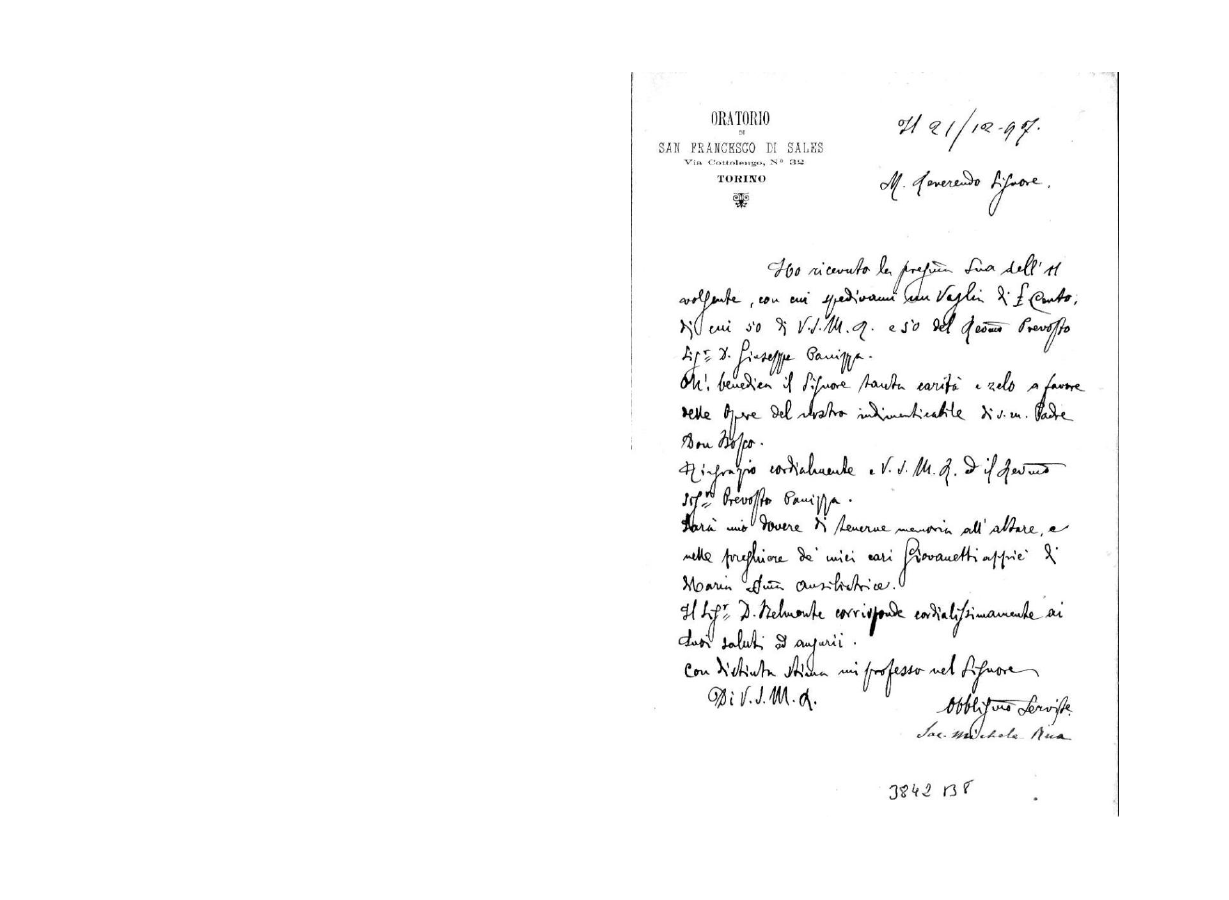 ORATORIO
DI
SAN FRANCESCO DI SALES
Via Cottolengo, Nº 32
TORINO
Il 21/12-97.
M. Reverendo Signore,
Ho ricevuto la pregma Sua dell' 11
volgente, con cui spedivami un Vaglia di £ Cento,
di cui 50 di V.S.M.R. e 50 del Revmo Prevosto
Sigr D. Giuseppe Panizza.
Oh! benedica il Signore tanta carità e zelo a favore
delle Opere del nostro indimenticabile di s.m. Padre
Don Bosco.
Ringrazio cordialmente e V.S.M.R. ed il Revmo
Sigre Prevosto Panizza.
Sarà mio dovere di tenerne memoria all' altare, e
nelle preghiere de' miei cari Giovanetti appiè di
Maria SSma Ausiliatrice.
Il Sigr D. Belmonte corrisponde cordialissimamente ai
Suoi saluti ed augurii.
Con distinta stima mi professo nel Signore
Di V.S.M.R.
Obbligmo Servitre
Sac. Michele Rua
3842 B8